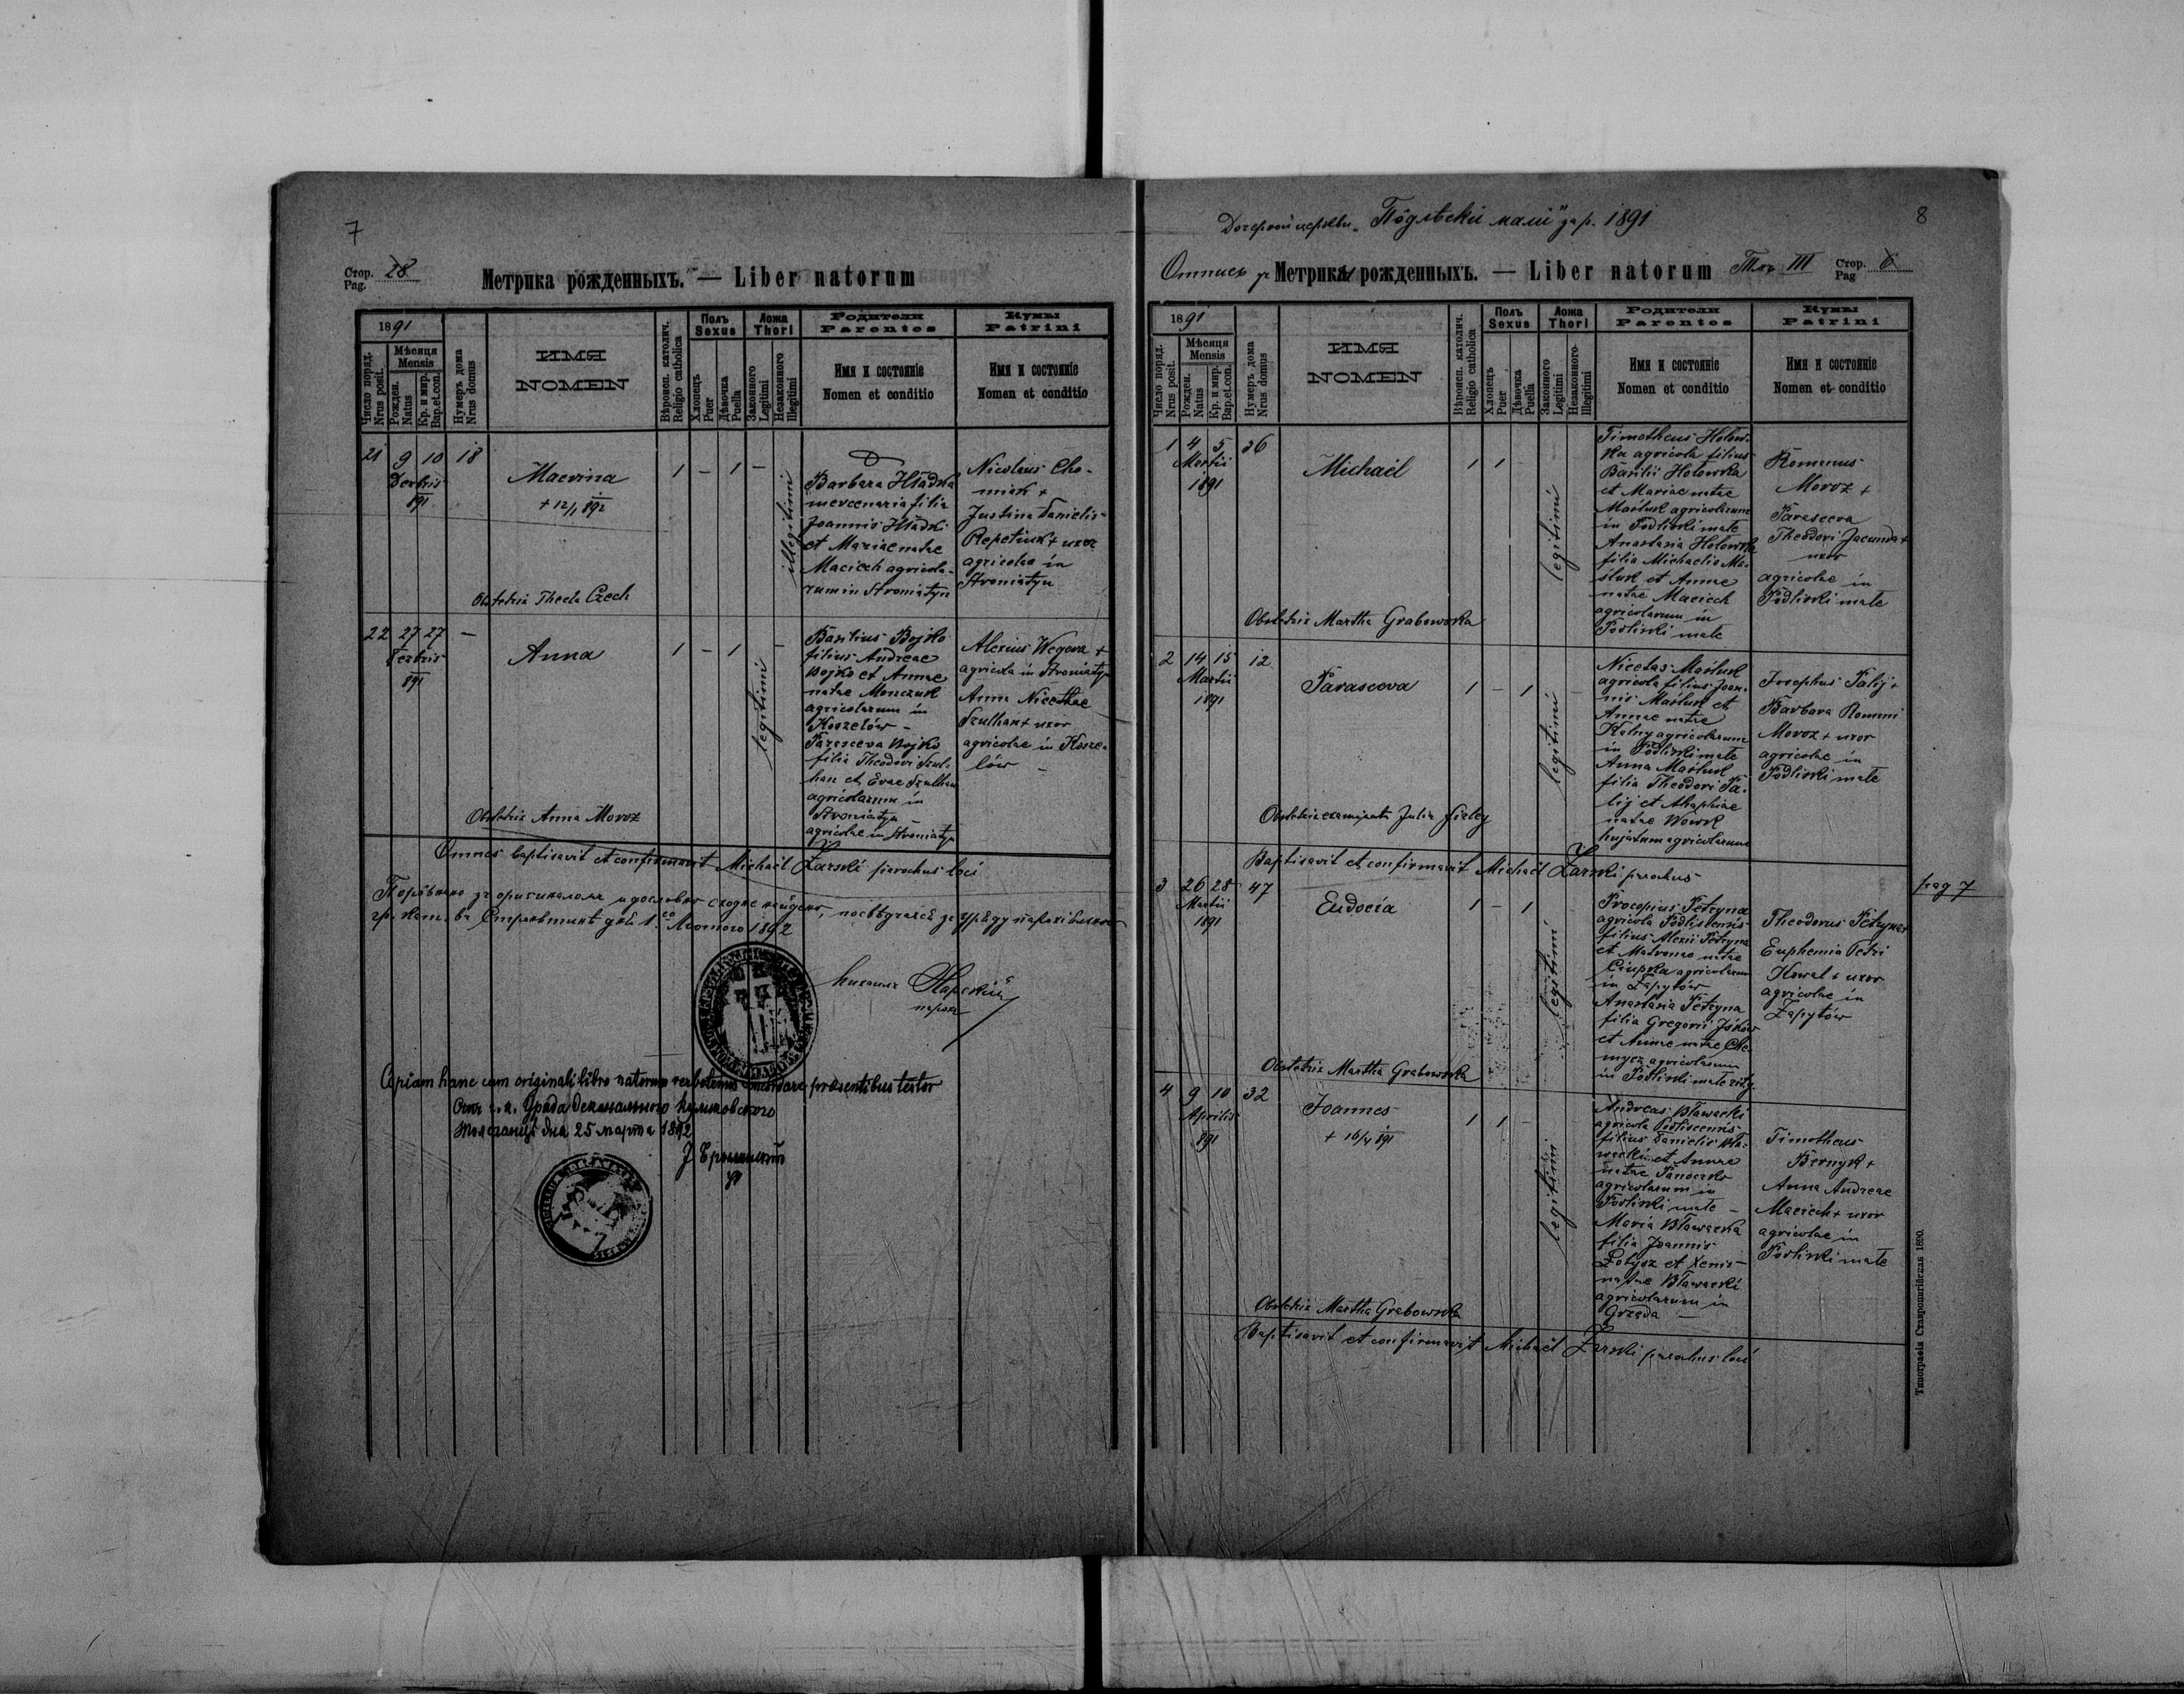 7
Стор. 28
Pag.
Метрика рожденныхъ. — Liber natorum
1891
Число поряд.
Nrus posit.
Мѣсяця
Mensis
Рожден.
Natus
Кр. и мир.
Bap.et.con.
Нумеръ дома
Nrus domus
ИМЯ
NOMEN
Вѣроисп. католич.
Religio catholica
Полъ
Sexus
Хлопецъ
Puer
Дѣвочка
Puella
Ложа
Thori
Законного
Legitimi
Незаконного
Illegitimi
Родители
Parentes
Имя и состояніе
Nomen et conditio
Кумы
Patrini
Имя и состояніе
Nomen et conditio
21 9 10 18
Decbris
891
Macrina
+ 12/1 892
1 – 1 –
illegitimi
Barbara Hładka
mercenaria filia
Joannis Hładki
et Mariae natae
Maciech agricola-
rum in Stroniatyn
Nicolaus Cho-
miak +
Justina Danielis
Repetiuk + uxor
agricolae in
Stroniatyn
Obstetrix Thecla Czech
22 27 27 –
Decbris
891
Anna
1 – 1 –
legitimi
Basilius Bojko
filius Andreae
Bojko et Annae
natae Monczuk
agricolarum in
Koszelów –
Parasceva Bojko
filia Theodori Szul-
han et Evae Szulhan
agricolarum in
Stroniatyn –
agricolae in Stroniatyn
Alexius Wegera +
agricola in Stroniatyn
Anna Nicethae
Szulhan + uxor
agricolae in Kosze-
lów –
Obstetrix Anna Moroz
Omnes baptisavit et confirmavit Michaël Żarski parochus loci
Порôвнано зъ оригиналомъ и дословно сходне найдено, посвѣдчаеся зъ Уряду парохіального
гр. кат. въ дня 1го Лютого 1892
Михаилъ Жарскій
парох
Copiam hanc cum originali libro natorum verbotenus concordare praesentibus testor
Отъ г. к. Уряда деканального Куликовского
дня 25 марта 1892
8
Дочерной церкви „Пôдлѣски маліи" за р. 1891
Отпись зъ Метрики рожденныхъ. — Liber natorum Томъ III Стор. 6
Pag
1891
Число поряд.
Nrus posit.
Мѣсяця
Mensis
Рожден.
Natus
Кр. и мир.
Bap.et.con.
Нумеръ дома
Nrus domus
ИМЯ
NOMEN
Вѣроисп. католич.
Religio catholica
Полъ
Sexus
Хлопецъ
Puer
Дѣвочка
Puella
Ложа
Thori
Законного
Legitimi
Незаконного
Illegitimi
Родители
Parentes
Имя и состояніе
Nomen et conditio
Кумы
Patrini
Имя и состояніе
Nomen et conditio
1 4 5 36
Martii
1891
Michaël
1 1 –
legitimi
Timotheus Holow-
ka agricola filius
Basilii Holowka
et Mariae natae
Maśluk agricolarum
in Podliski małe
Anastasia Holowka
filia Michaelis Ma-
śluk et Annae
natae Maciech
agricolarum in
Podliski małe
Romanus
Moroz +
Parasceva
Theodori Jacunda +
uxor
agricolae in
Podliski małe
Obstetrix Martha Grabowska
2 14 15 12
Martii
1891
Parasceva
1 – 1 –
legitimi
Nicetas Maśluk
agricola filius Joan-
nis Maśluk et
Annae natae
Kalny agricolarum
in Podliski małe
Anna Maśluk
filia Theodori Pa-
lij et Ahaphiae
natae Wowk
hujatum agricolarum
Josephus Palij +
Barbara Romani
Moroz + uxor
agricolae in
Podliski małe
Obstetrix examinata Julia
Baptisavit et confirmavit Michaël Żarski parochus
3 26 28 47
Martii
1891
Eudocia
1 – 1
legitimi
Procopius Petryna
agricola Podliscensis
filius Alexii Petryna
et Matronae natae
Ciupka agricolarum
in Zapytów
Anastasia Petryna
filia Gregorii Jśków
et Annae natae Che-
mycz agricolarum
in Podliski małe
Theodorus Petryna +
Euphemia Petri
Kowal + uxor
agricolae in
Zapytów
pag 7
Obstetrix Martha Grabowska
4 9 10 32
Aprilis
891
Joannes
+ 16/4 891
1 1 –
legitimi
Andreas Bławacki
agricola Podliscensis
filius Danielis Bła-
wacki et Annae
natae Panoczko
agricolarum in
Podliski małe –
Maria Bławacka
filia Joannis
Łotysz et Xenis
natae Bławacki
agricolarum in
Grzęda –
Timotheus
Bernyk +
Anna Andreae
Maciech + uxor
agricolae in
Podliski małe
Obstetrix Martha Grabowska
Baptisavit et confirmavit Michaël Żarski parochus loci
Типографія Ставропигійская 1890.